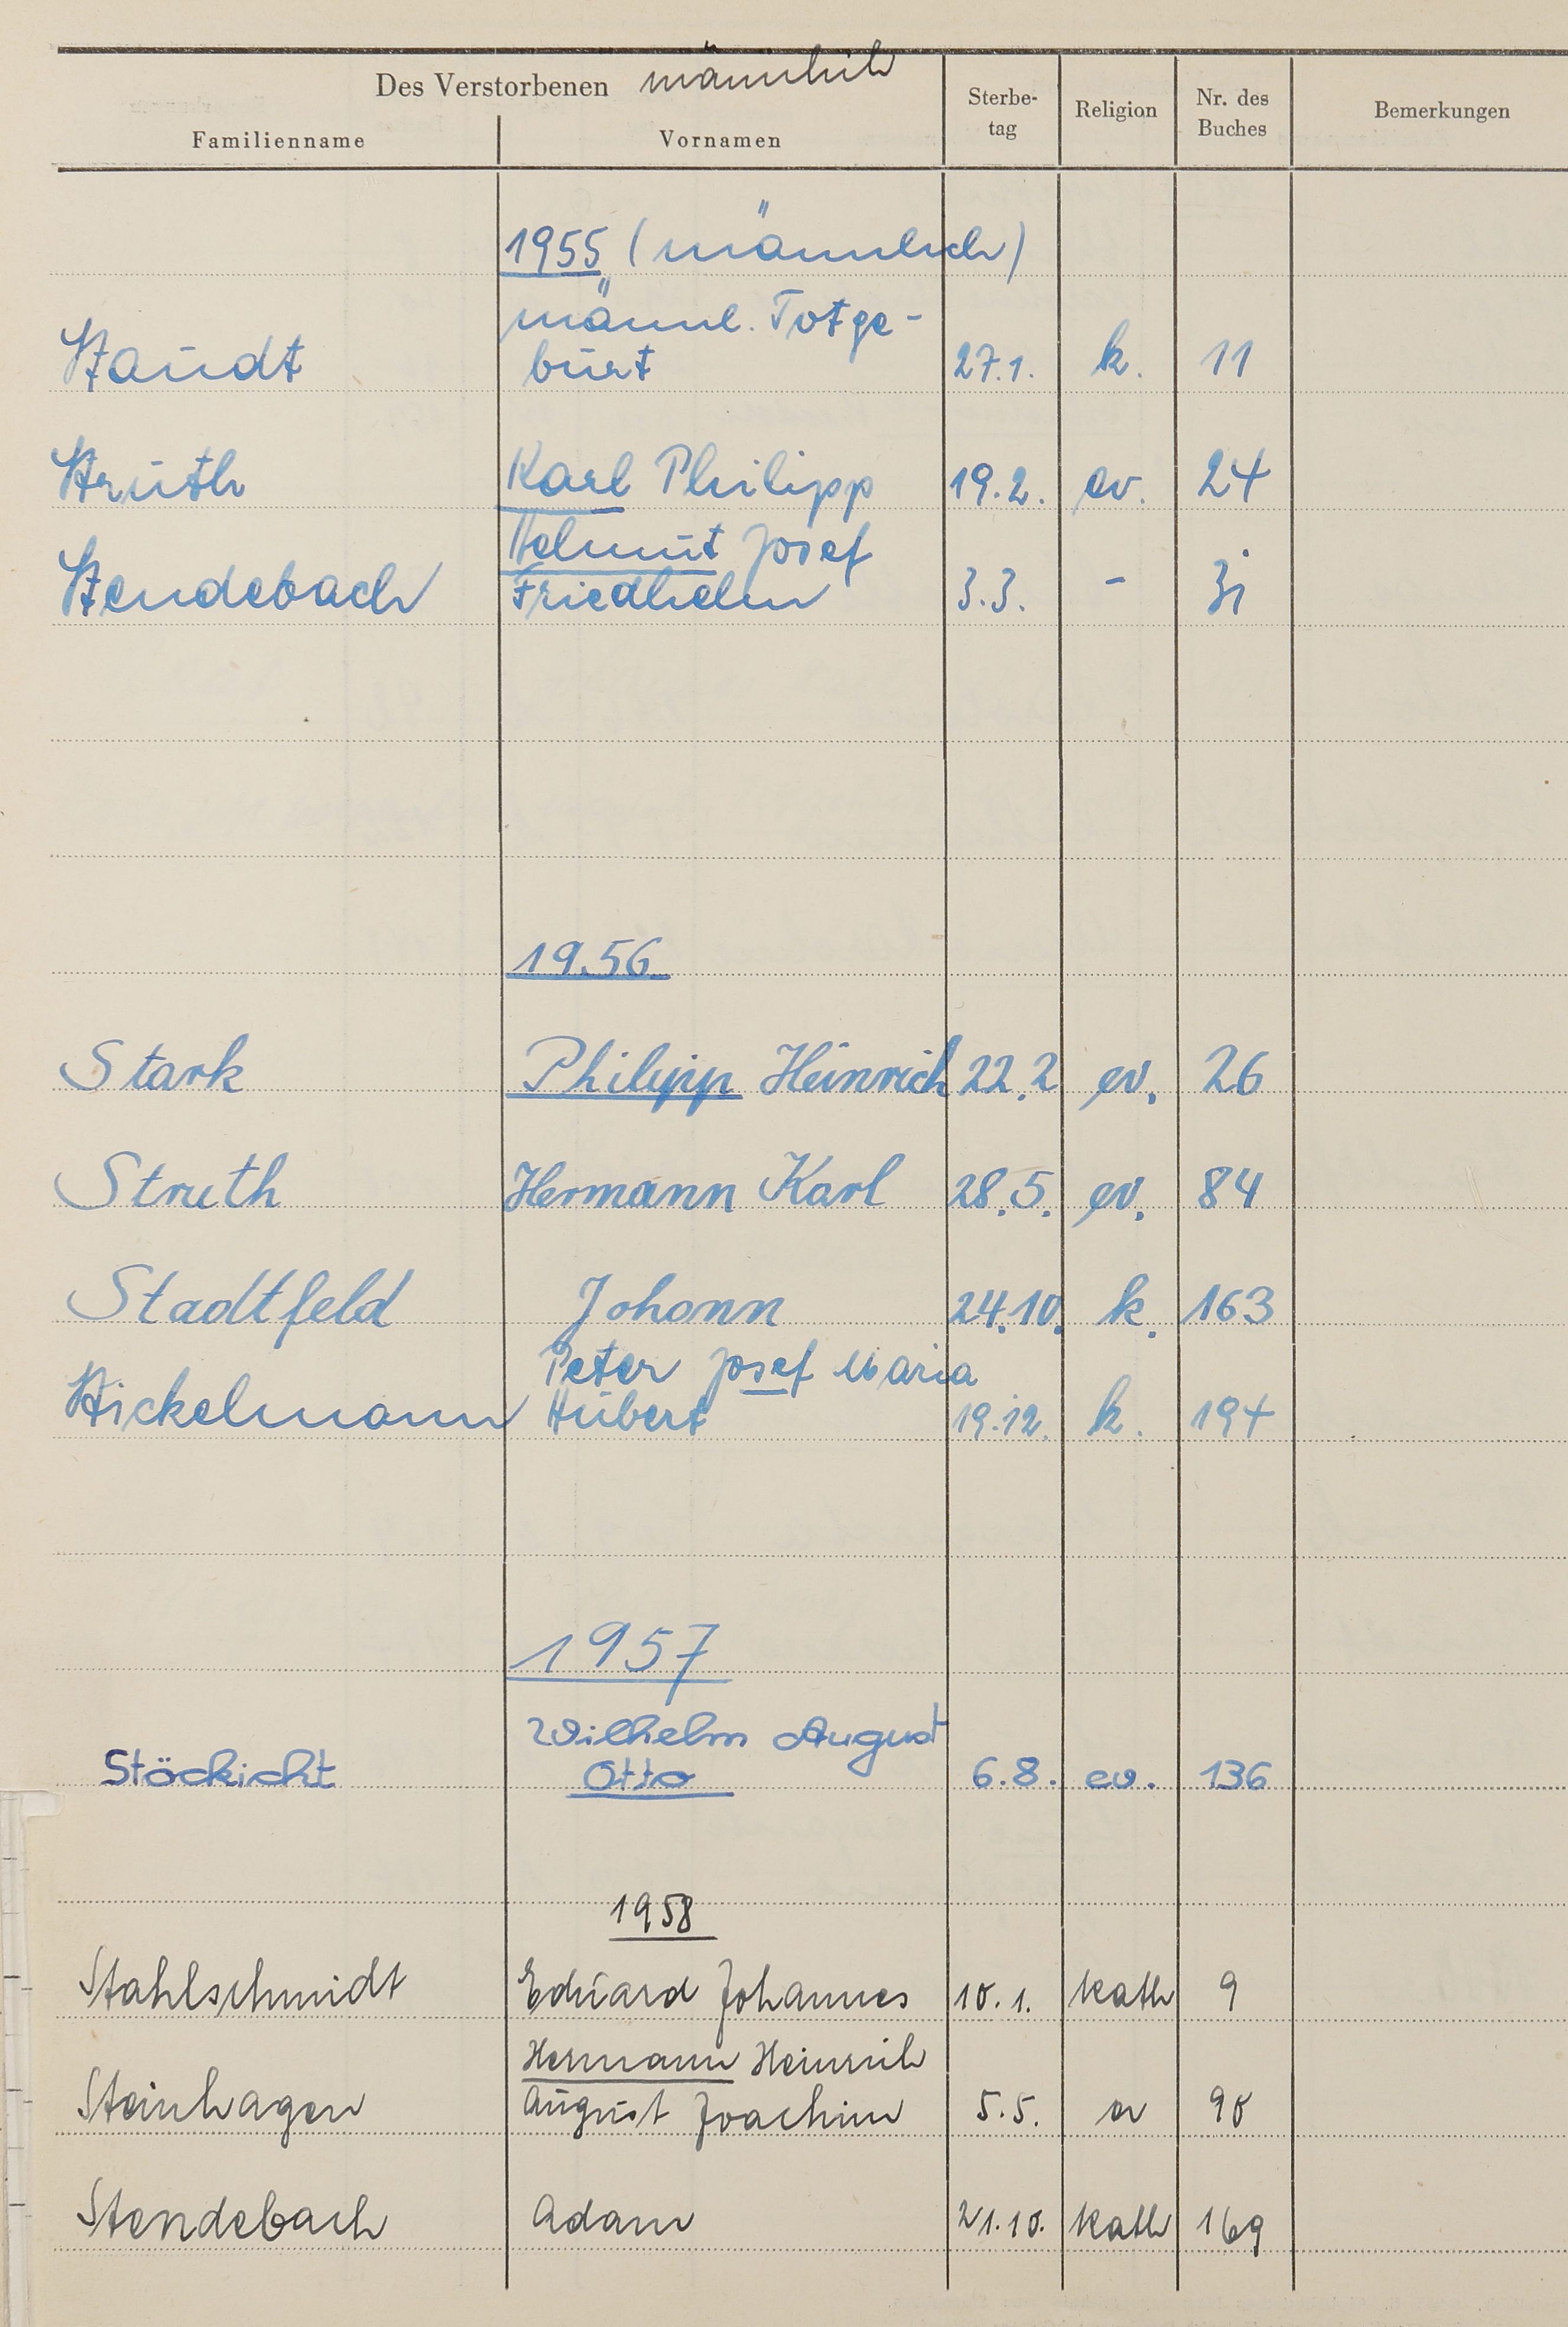 Des Verstorbenen männlich
Familienname Vornamen Sterbe-
tag Religion Nr. des
Buches Bemerkungen
1955 (männlich)
männl. Totge-
Staudt burt 27.1. k. 11
Struth Karl Philipp 19.2. ev. 24
Helmut Josef
Stendebach Friedhelm 3.3. - 31
19.56
Stark Philipp Heinrich 22.2 ev. 26
Struth Hermann Karl 28.5. ev. 84
Stadtfeld Johann 24.10. k. 163
Peter Josef Maria
Stickelmann Hubert 19.12. k. 194
1957
Wilhelm August
Stöckicht Otto 6.8. ev. 136
1958
Stahlschmidt Eduard Johannes 10.1. kath 9
Hermann Heinrich
Steinhagen August Joachim 5.5. ev 90
Stendebach Adam 21.10. kath 169